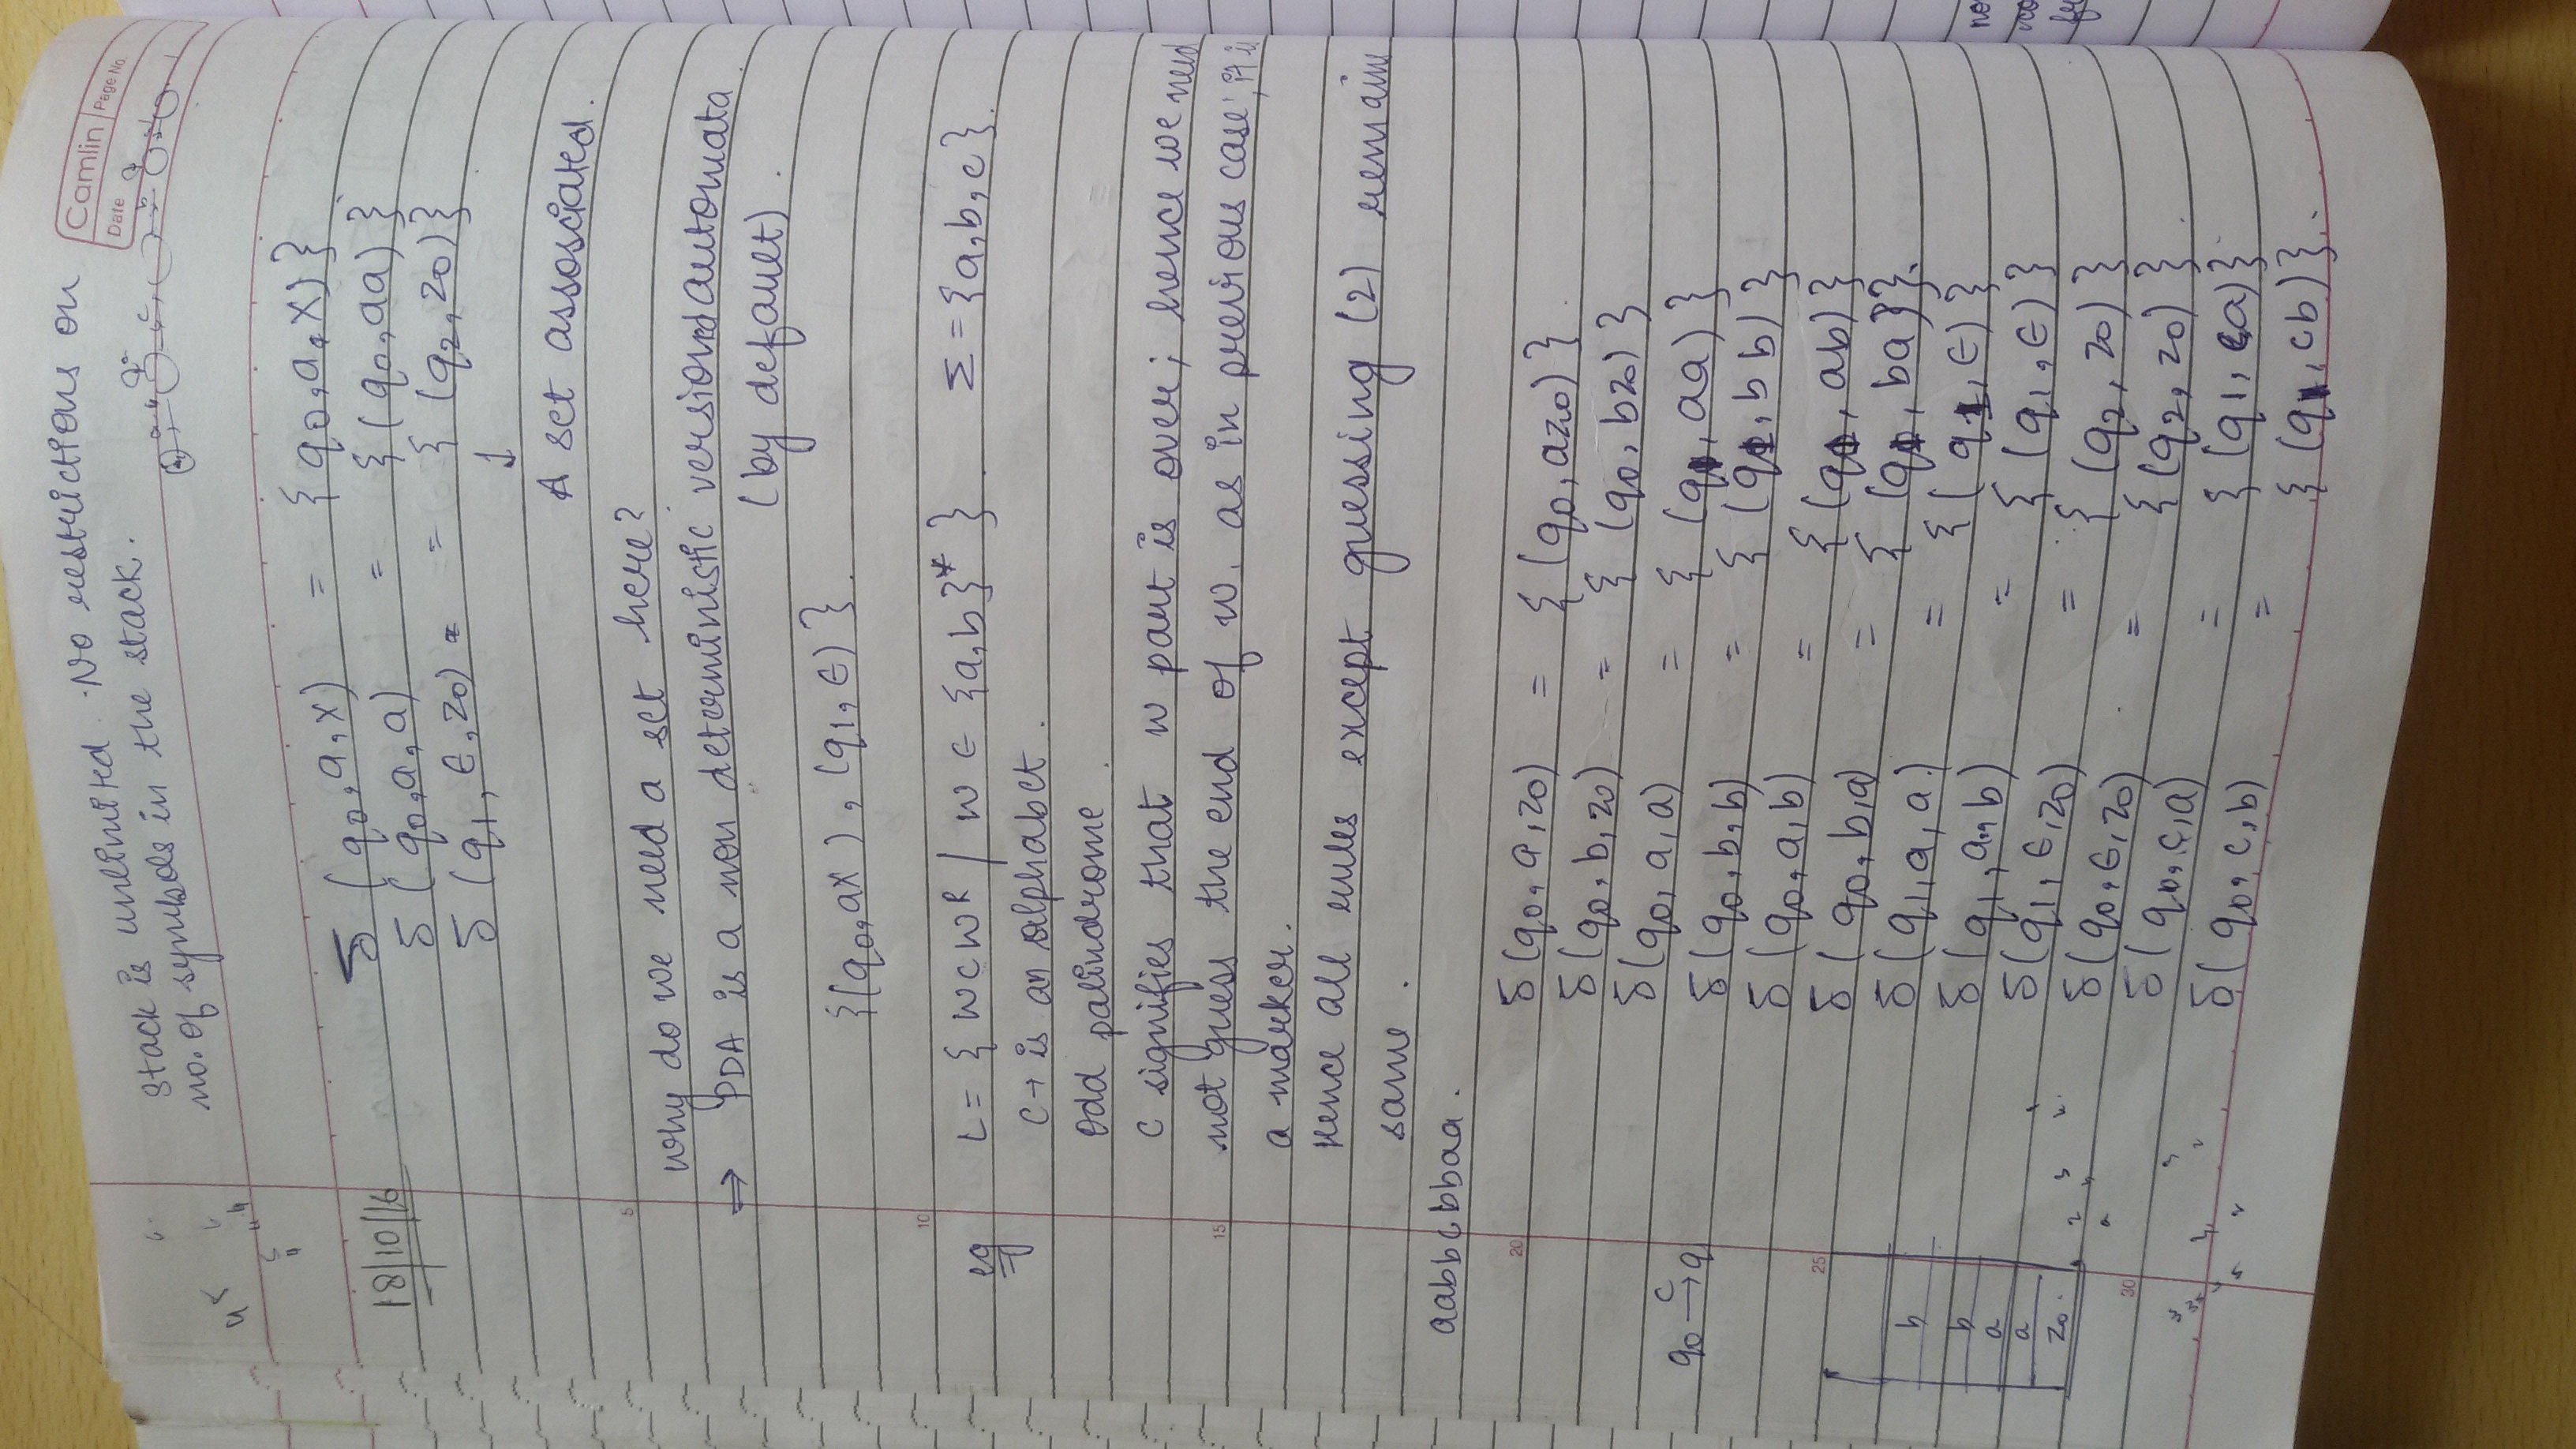 Camlin
Page No.
Date
Stack is unlimited. No restrictions on
no. of symbols in the stack.
δ (q0, a, x) = {q0, a, x)}
18/10/16
δ (q0, a, a) = {(q0, aa)}
δ (q1, ϵ, z0) = = {(q2, z0)}
↓
A set assosciated.
5
why do we need a set here?
⇒ PDA is a non deterministic version automata
(by default).
{(q0, ax), (q1, ϵ)}.
10
eg L = { wcwR / w ϵ {a,b}* } Σ = {a,b,c}.
C → is an alphabet.
Odd palindrome.
C signifies that w part is over; hence we need
15
not guess the end of w. as in previous case; it is
a marker.
Hence all rules except guessing (2) remains
same.
aabbcbbaa.
20
δ(q0, a, z0) = {(q0, az0)}.
δ(q0, b, z0) = {(q0, bz0)}
δ(q0, a, a) = {(q, aa)}
q0 →c q
δ(q0, b, b) = {(q, bb)}
δ(q0, a, b) = {(q, ab)}
25
δ(q0, b, a) = {(q, ba)}.
δ(q1, a, a) = {(q1, ϵ)}
b
δ(q1, a, b) = {(q1, ϵ)}
b
a
δ(q1, ϵ, z0) = {(q2, z0)}
a
z0
δ(q0, ϵ, z0) = {(q2, z0)}.
30
δ(q0, c, a) = {(q1, ca)}
δ(q0, c, b) = {(q1, cb)}.